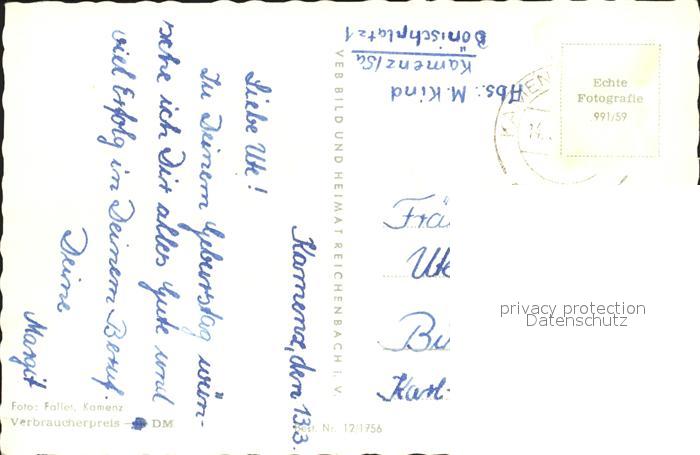 Kamenz, den 13.3.
Liebe Ute!
Zu Deinem Geburtstag wün-
sche ich Dir alles Gute und
viel Erfolg in Deinem Beruf.
Deine
Margit
Abs.: M. Kind
Kamenz/Sa
Bönischplatz 1
VEB BILD UND HEIMAT REICHENBACH I. V.
KAMEN
Echte
Fotografie
991/59
Frä
Ute
Bi
Karl-
privacy protection
Datenschutz
Foto: Faller, Kamenz
Verbraucherpreis DM
Best. Nr. 12/1756